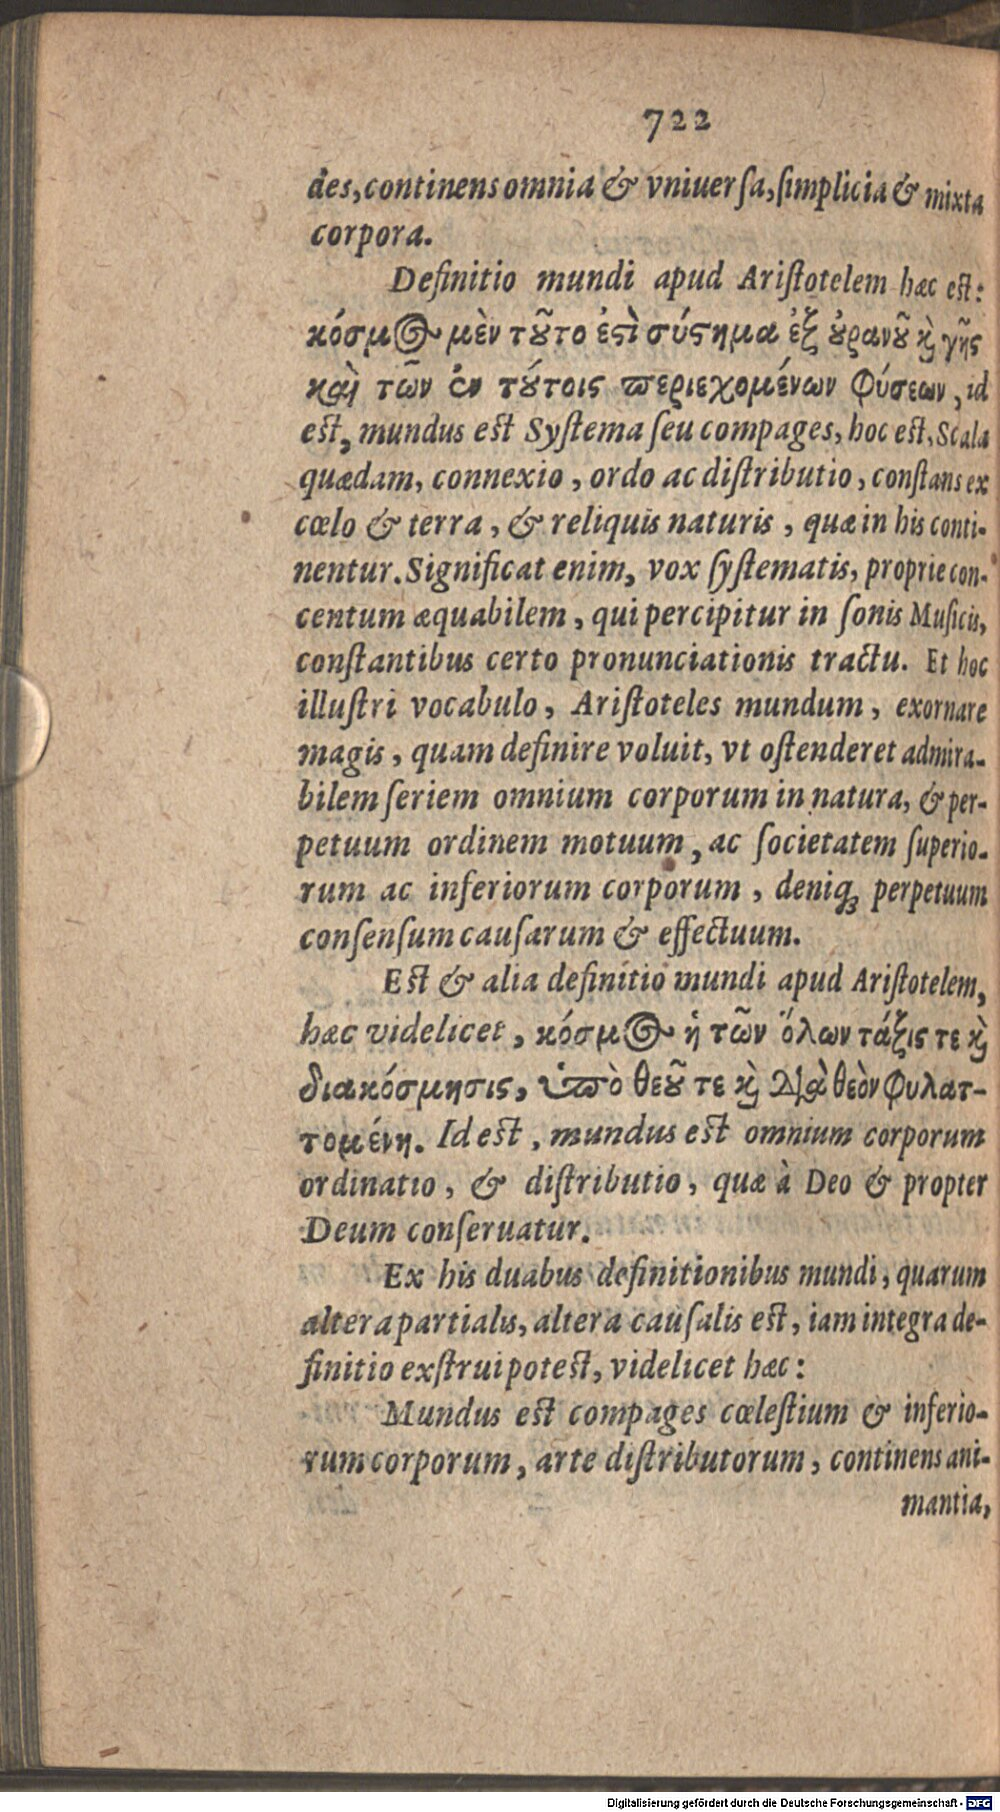 722
des, continens omnia & vniuerſa, ſimplicia & mixta
corpora.
Definitio mundi apud Ariſtotelem hæc est:
κόσμος μὲν τοῦτο ἐστὶ σύστημα ἐξ οὐρανοῦ καὶ γῆς
καὶ τῶν ἐν τούτοις περιεχομένων φύσεων, id
est, mundus est Syſtema ſeu compages, hoc est, Scala
quædam, connexio, ordo ac diſtributio, conſtans ex
cœlo & terra, & reliquis naturis, quæ in his conti-
nentur. Significat enim, vox ſyſtematis, proprie con-
centum æquabilem, qui percipitur in ſonis Muſicis,
conſtantibus certo pronunciationis tractu. Et hoc
illuſtri vocabulo, Ariſtoteles mundum, exornare
magis, quam definire voluit, vt oſtenderet admira-
bilem ſeriem omnium corporum in natura, & per-
petuum ordinem motuum, ac ſocietatem ſuperio-
rum ac inferiorum corporum, deniqꝫ perpetuum
conſenſum cauſarum & effectuum.
Est & alia definitio mundi apud Ariſtotelem,
hæc videlicet, κόσμος ἡ τῶν ὅλων τάξις τε καὶ
διακόσμησις, ὑπὸ θεοῦ τε καὶ διὰ θεὸν φυλατ-
τομένη. Id est, mundus est omnium corporum
ordinatio, & diſtributio, quæ à Deo & propter
Deum conſeruatur.
Ex his duabus definitionibus mundi, quarum
altera partialis, altera cauſalis est, iam integra de-
finitio exſtrui potest, videlicet hæc:
Mundus est compages cœleſtium & inferio-
rum corporum, arte diſtributorum, continens ani-
mantia,
Digitalisierung gefördert durch die Deutsche Forschungsgemeinschaft - DFG